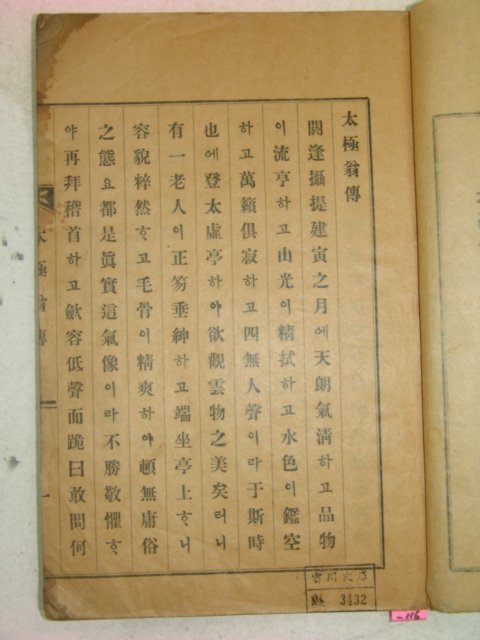 太極翁傳
閼逢攝提建寅之月에天朗氣淸하고品物
이流亨하고山光이精拭하고水色이鑑空
하고萬籟俱寂하고四無人聲이라于斯時
也에登太虛亭하야欲觀雲物之美矣러니
有一老人이正笏垂紳하고端坐亭上ᄒᆞ니
容貌粹然ᄒᆞ고毛骨이精爽하야頓無庸俗
之態요都是眞實這氣像이라不勝敬懼ᄒᆞ
야再拜稽首하고斂容低聲而跪曰敢問何
太極翁傳
一
3432